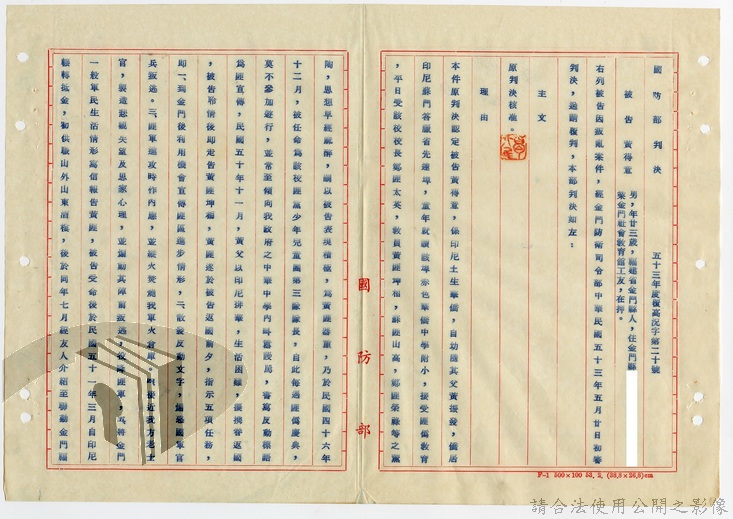 國防部判決
五十三年度覆高況字第二十號
被告 黃得意
男,年廿三歲,福建省金門縣人,住金門縣
業金門社會教育館工友,在押。
右列被告因叛亂案件,經金門防衛司令部中華民國五十三年五月廿日初審
判決,送請覆判,本部判決如左:
主文
原判決核准。
理由
本件原判決認定被告黃得意,係印尼土生華僑,自幼隨其父黃振發,僑居
印尼蘇門答臘省先達埠,童年就讀該埠赤色華僑中學附小,接受匪偽教育
,平日受該校校長鄭匪太英,教員黃匪坤和,蘇匪山高,鄭匪榮錄等之薰
陶,思想早經麻醉,嗣以被告表現積極,為黃匪器重,乃於民國四十六年
十二月,被任命為該校匪黨少年兒童團第三隊隊長,自此每遇匪偽慶典,
莫不參加遊行,並常至傾向我政府之中華中學內叫囂毀罵,書寫反動標語
為匪宣傳,民國五十年十一月,黃父以印尼排華,生活困難,擬攜眷返國
,被告聆悉後即走告黃匪坤和,黃匪遂於被告返國前夕,指示五項任務,
即一、到金門後利用機會宣傳匪區進步情形,二、散發反動文字,煽惑國軍官
兵叛逃。三、匪軍進攻時作內應,並縱火焚燒我軍火倉庫。四、接近我方老士
官,製造悲觀失望及思家心理,並煽動其陣前叛逃,投降匪軍,五、將金門
一般軍民生活情形寫信報告黃匪,被告受命後於民國五十一年三月自印尼
輾轉抵金,初供職山外山東酒樓,後於同年七月經友人介紹至聯勤金門福
國防部
F-1 500×100 53. 2. (38,8×26,8)cm
請合法使用公開之影像